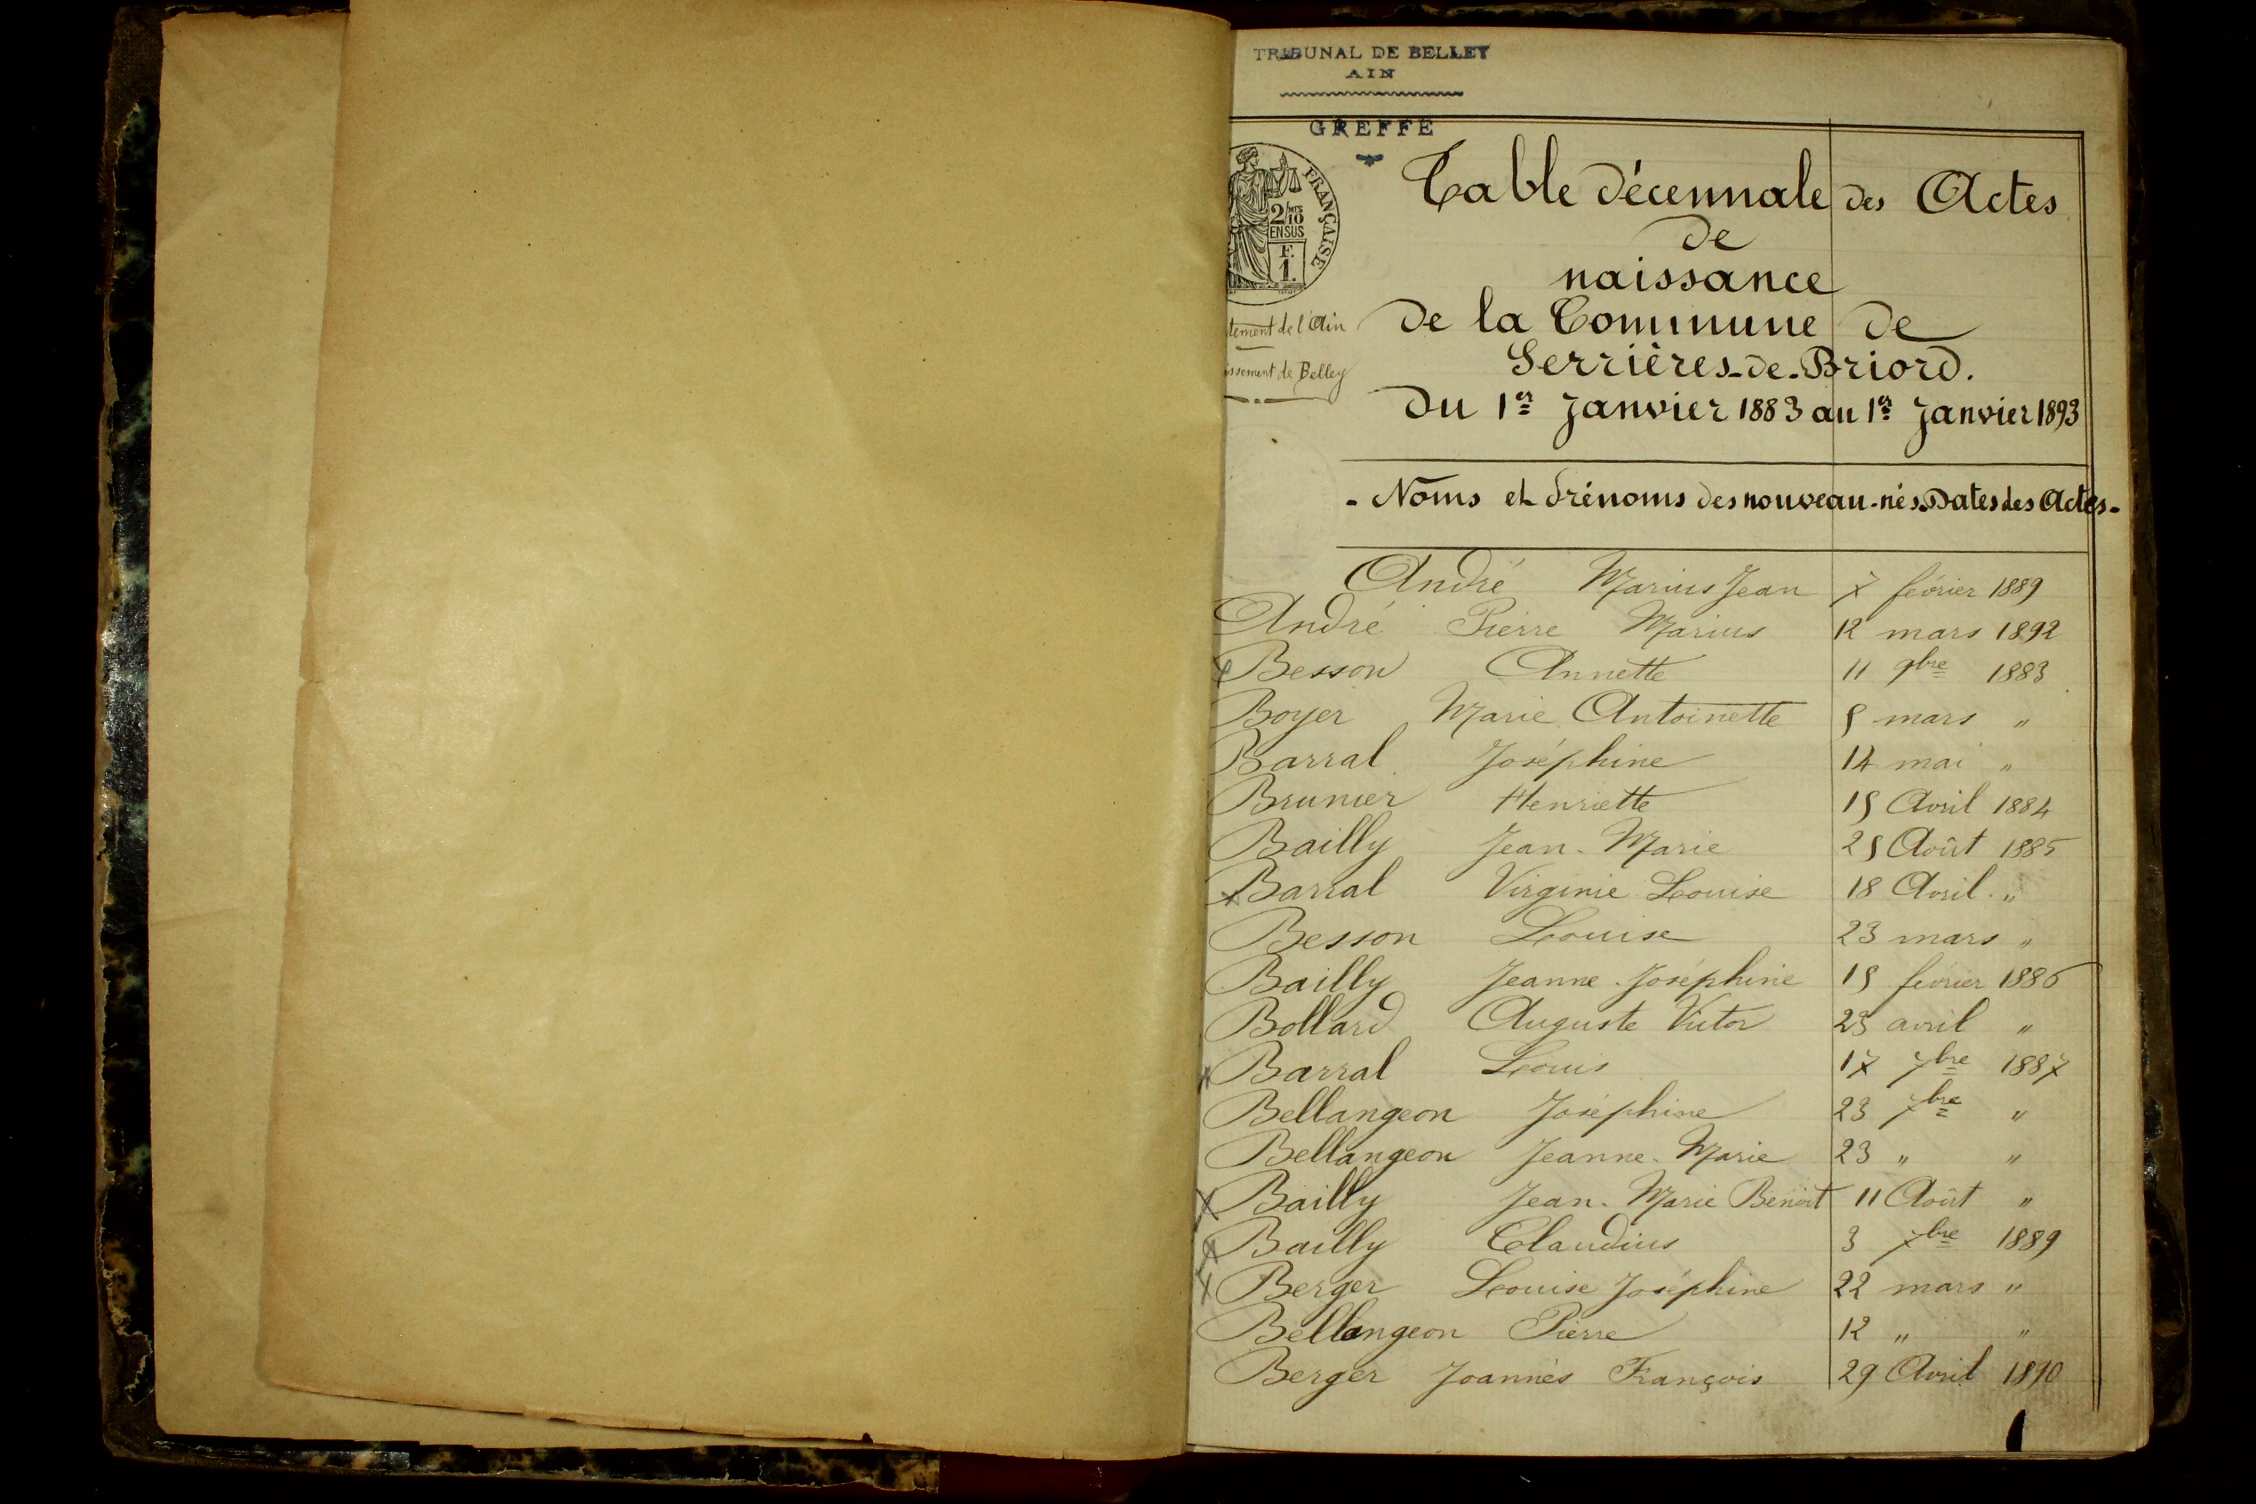 TRIBUNAL DE BELLEY
AIN
GREFFE
FRANÇAISE
2/10 MES
EN SUS
F.
1.
tement de l'Ain
issement de Belley
Table décennale des Actes
de
naissance
de la Commune de
Serrières-de-Briord.
du 1er Janvier 1883 au 1er Janvier 1893
- Noms et Prénoms des nouveau-nés. Dates des Actes -
André Marius Jean 7 février 1889
André Pierre Marius 12 mars 1892
x Besson Annette 11 9bre 1883
Boyer Marie Antoinette 5 mars "
Barral Joséphine 14 mai "
Brunier Henriette 15 Avril 1884
Bailly Jean-Marie 25 Août 1885
x Barral Virginie Louise 18 Avril "
Besson Louise 23 mars "
Bailly Jeanne-Joséphine 15 février 1886
Bollard Auguste Victor 23 avril "
x Barral Louis 17 7bre 1887
Bellangeon Joséphine 23 7bre "
Bellangeon Jeanne-Marie 23 " "
x Bailly Jean-Marie Benoit 11 Août "
x Bailly Claudius 3 7bre 1889
x Berger Louise Joséphine 22 mars "
Bellangeon Pierre 12 " "
Berger Joannès François 29 Avril 1890